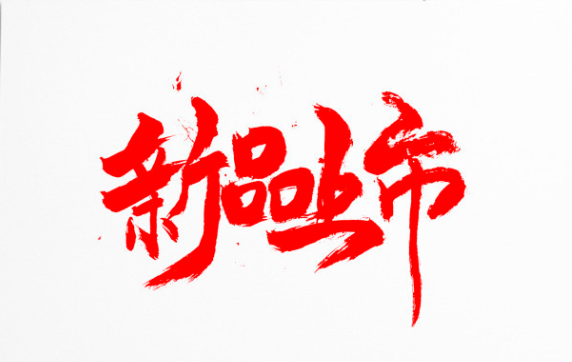 新品上市